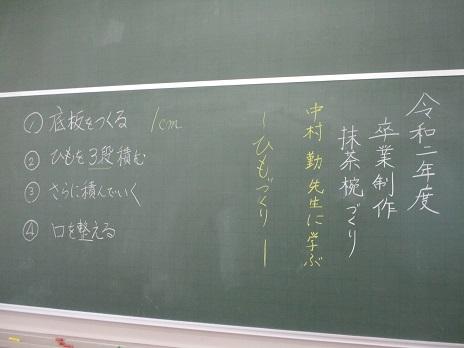 令和二年度
卒業制作
抹茶椀づくり
中村勤先生に学ぶ
ーひもづくりー
① 底板をつくる 1cm
② ひもを3段積む
③ さらに積んでいく
④ 口を整える